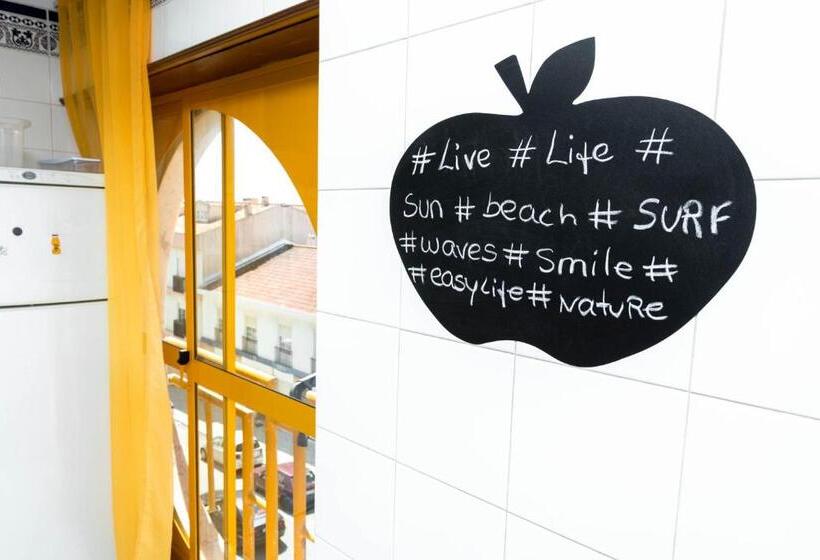 #Live #Life #
Sun #beach #SURF
#waves #Smile #
#easylife #NatuRe